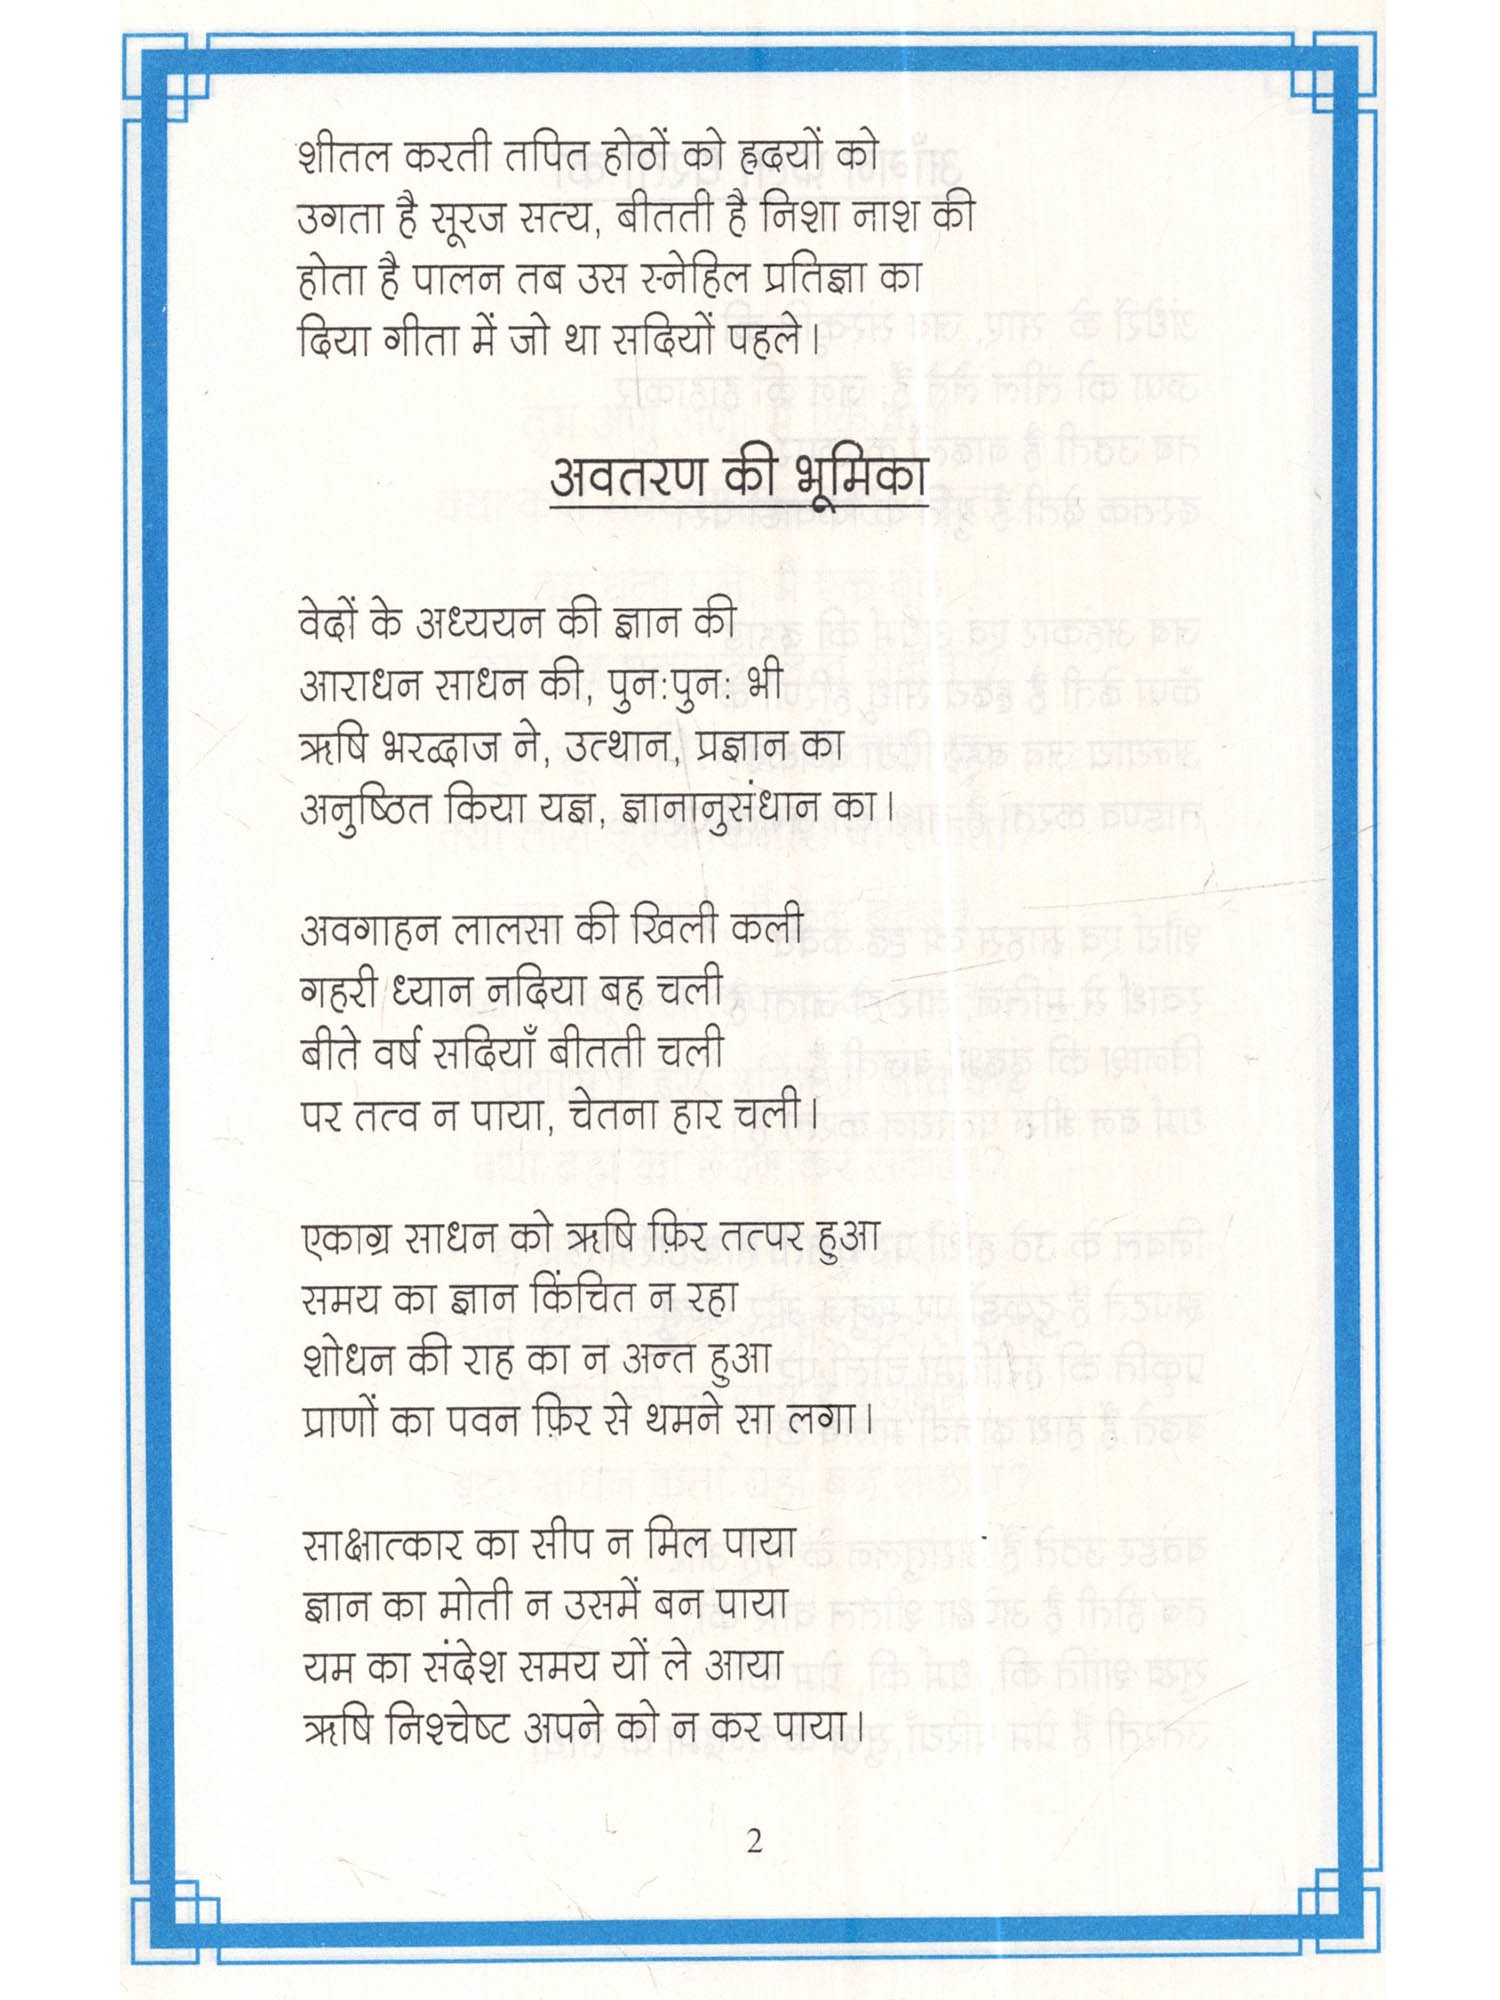 शीतल करती तपित होठों को ह्रदयों को
उगता है सूरज सत्य, बीतती है निशा नाश की
होता है पालन तब उस स्नेहिल प्रतिज्ञा का
दिया गीता में जो था सदियों पहले।
अवतरण की भूमिका
वेदों के अध्ययन की ज्ञान की
आराधन साधन की, पुन:पुन: भी
ऋषि भरद्वाज ने, उत्थान, प्रज्ञान का
अनुष्ठित किया यज्ञ, ज्ञानानुसंधान का।
अवगाहन लालसा की खिली कली
गहरी ध्यान नदिया बह चली
बीते वर्ष सदियाँ बीतती चली
पर तत्व न पाया, चेतना हार चली।
एकाग्र साधन को ऋषि फ़िर तत्पर हुआ
समय का ज्ञान किंचित न रहा
शोधन की राह का न अन्त हुआ
प्राणों का पवन फ़िर से थमने सा लगा।
साक्षात्कार का सीप न मिल पाया
ज्ञान का मोती न उसमें बन पाया
यम का संदेश समय यों ले आया
ऋषि निश्चेष्ट अपने को न कर पाया।
2